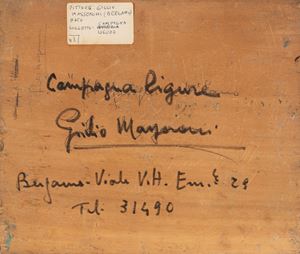 PITTORE: GIULIO
MASSERONI (BERGAMO)
OLIO
SOGGETTO: CAMPAGNA
LIGURE
Campagna ligure
Giulio Masseroni
Bergamo - Viale V.tt. Em.le 29
Tel. 31490